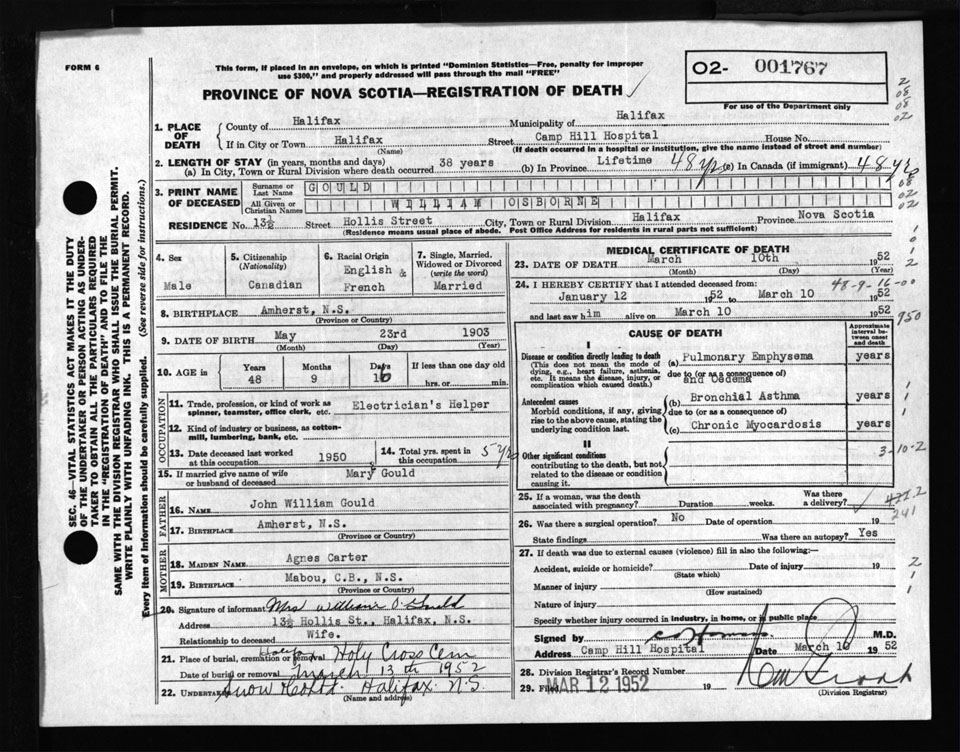 FORM 6
This form, if placed in an envelope, on which is printed "Dominion Statistics—Free, penalty for improper
use $300," and properly addressed will pass through the mail "FREE"
O2- 001767
PROVINCE OF NOVA SCOTIA—REGISTRATION OF DEATH
For use of the Department only
2
08
08
02
1. PLACE OF DEATH
County of Halifax Municipality of Halifax
If in City or Town Halifax Street Camp Hill Hospital House No.
(Name) (If death occurred in a hospital or institution, give the name instead of street and number)
2. LENGTH OF STAY (in years, months and days)
(a) In City, Town or Rural Division where death occurred 38 years (b) In Province Lifetime 48 yrs (c) In Canada (if immigrant) 48 yrs
3. PRINT NAME OF DECEASED
Surname or Last Name GOULD
All Given or Christian Names WILLIAM OSBORNE
08
02
RESIDENCE No. 13½ Street Hollis Street City, Town or Rural Division Halifax Province Nova Scotia
(Residence means usual place of abode. Post Office Address for residents in rural parts not sufficient)
4. Sex
Male
5. Citizenship
(Nationality)
Canadian
6. Racial Origin
English &
French
7. Single, Married,
Widowed or Divorced
(write the word)
Married
8. BIRTHPLACE Amherst, N.S.
(Province or Country)
9. DATE OF BIRTH May 23rd 1903
(Month) (Day) (Year)
10. AGE in
Years Months Days If less than one day old
48 9 16 hrs. or min.
OCCUPATION
11. Trade, profession, or kind of work as
spinner, teamster, office clerk, etc. Electrician's Helper
12. Kind of industry or business, as cotton-
mill, lumbering, bank, etc.
13. Date deceased last worked
at this occupation 1950
14. Total yrs. spent in
this occupation 5 yrs
15. If married give name of wife
or husband of deceased Mary Gould
FATHER
16. NAME John William Gould
17. BIRTHPLACE Amherst, N.S.
(Province or Country)
MOTHER
18. MAIDEN NAME Agnes Carter
19. BIRTHPLACE Mabou, C.B., N.S.
(Province or Country)
20. Signature of informant Mrs William O. Gould
Address 13½ Hollis St., Halifax, N.S.
Relationship to deceased Wife.
21. Place of burial, cremation or removal Halifax Holy Cross Cem
March 13th 1952
22. UNDERTAKER Snow Halifax N.S.
(Name and address)
MEDICAL CERTIFICATE OF DEATH
23. DATE OF DEATH March 10th 1952
(Month) (Day) (Year)
48-9-16-00
24. I HEREBY CERTIFY that I attended deceased from:
January 12 1952 to March 10 1952
and last saw him alive on March 10 1952
950
CAUSE OF DEATH
Approximate interval between onset and death
I
Disease or condition directly leading to death
(This does not mean the mode of
dying, e.g., heart failure, asthenia,
etc. It means the disease, injury, or
complication which caused death.)
(a) Pulmonary Emphysema years
due to (or as a consequence of)
and Oedema
Antecedent causes
Morbid conditions, if any, giving
rise to the above cause, stating the
underlying condition last.
(b) Bronchial Asthma years
due to (or as a consequence of)
(c) Chronic Myocardosis years
II
Other significant conditions
contributing to the death, but not
related to the disease or condition
causing it.
3-10-2
25. If a woman, was the death
associated with pregnancy? Duration weeks. Was there
a delivery?
241
26. Was there a surgical operation? No Date of operation 19
State findings Was there an autopsy? Yes
27. If death was due to external causes (violence) fill in also the following:—
Accident, suicide or homicide? Date of injury 19
(State which)
Manner of injury
(How sustained)
Nature of injury
Specify whether injury occurred in industry, in home, or in public place
Signed by M.D.
Address Camp Hill Hospital Date March 10 1952
28. Division Registrar's Record Number
29. Filed MAR 12 1952 19
(Division Registrar)
SEC. 46—VITAL STATISTICS ACT MAKES IT THE DUTY
OF THE UNDERTAKER OR PERSON ACTING AS UNDER-
TAKER TO OBTAIN ALL THE PARTICULARS REQUIRED
IN THE "REGISTRATION OF DEATH" AND TO FILE THE
SAME WITH THE DIVISION REGISTRAR WHO SHALL ISSUE THE BURIAL PERMIT.
WRITE PLAINLY WITH UNFADING INK. THIS IS A PERMANENT RECORD.
Every item of information should be carefully supplied. (See reverse side for instructions.)